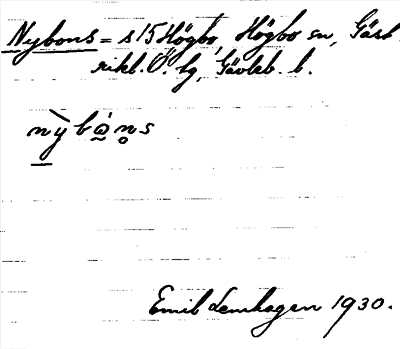 Nybons = s 15 Högbo, Högbo sn, Gäst-
rikl. Ö. tg, Gävleb. l.
nỳbå̀n̥s
Emil Lenhagen 1930.